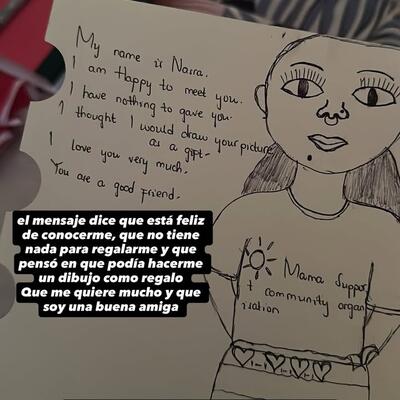 My name is Naira.
I am Happy to meet you.
I have nothing to gave you.
I thought I would draw your picture
as a gift.
I love you very much.
You are a good friend.
el mensaje dice que está feliz
de conocerme, que no tiene
nada para regalarme y que
pensó en que podía hacerme
un dibujo como regalo
Que me quiere mucho y que
soy una buena amiga
Mama Suppor
t community organ
isation